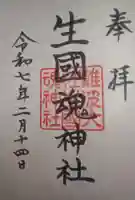 奉拝
生國魂神社
令和七年二月十四日